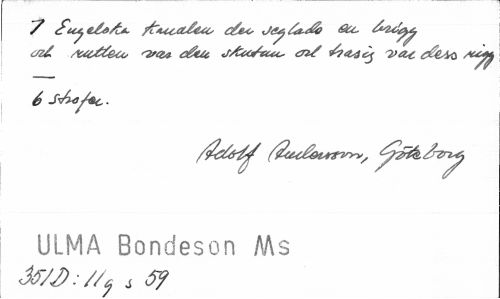 I Engelska kanalen der seglade en brigg
och rutten var den skutan och trasig var dess rigg
—
6 strofer.
Adolf Andersson, Göteborg
ULMA Bondeson Ms
351D: 11g s 59